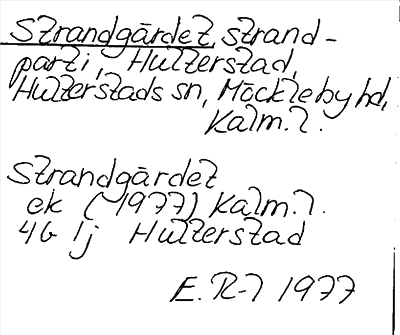 Strandgärdet, strand-
parti, Hulterstad,
Hulterstads sn, Möckleby hd,
Kalm. l.
Strandgärdet
ek (1977) Kalm. l.
4G 1j Hulterstad
E. R-l 1977